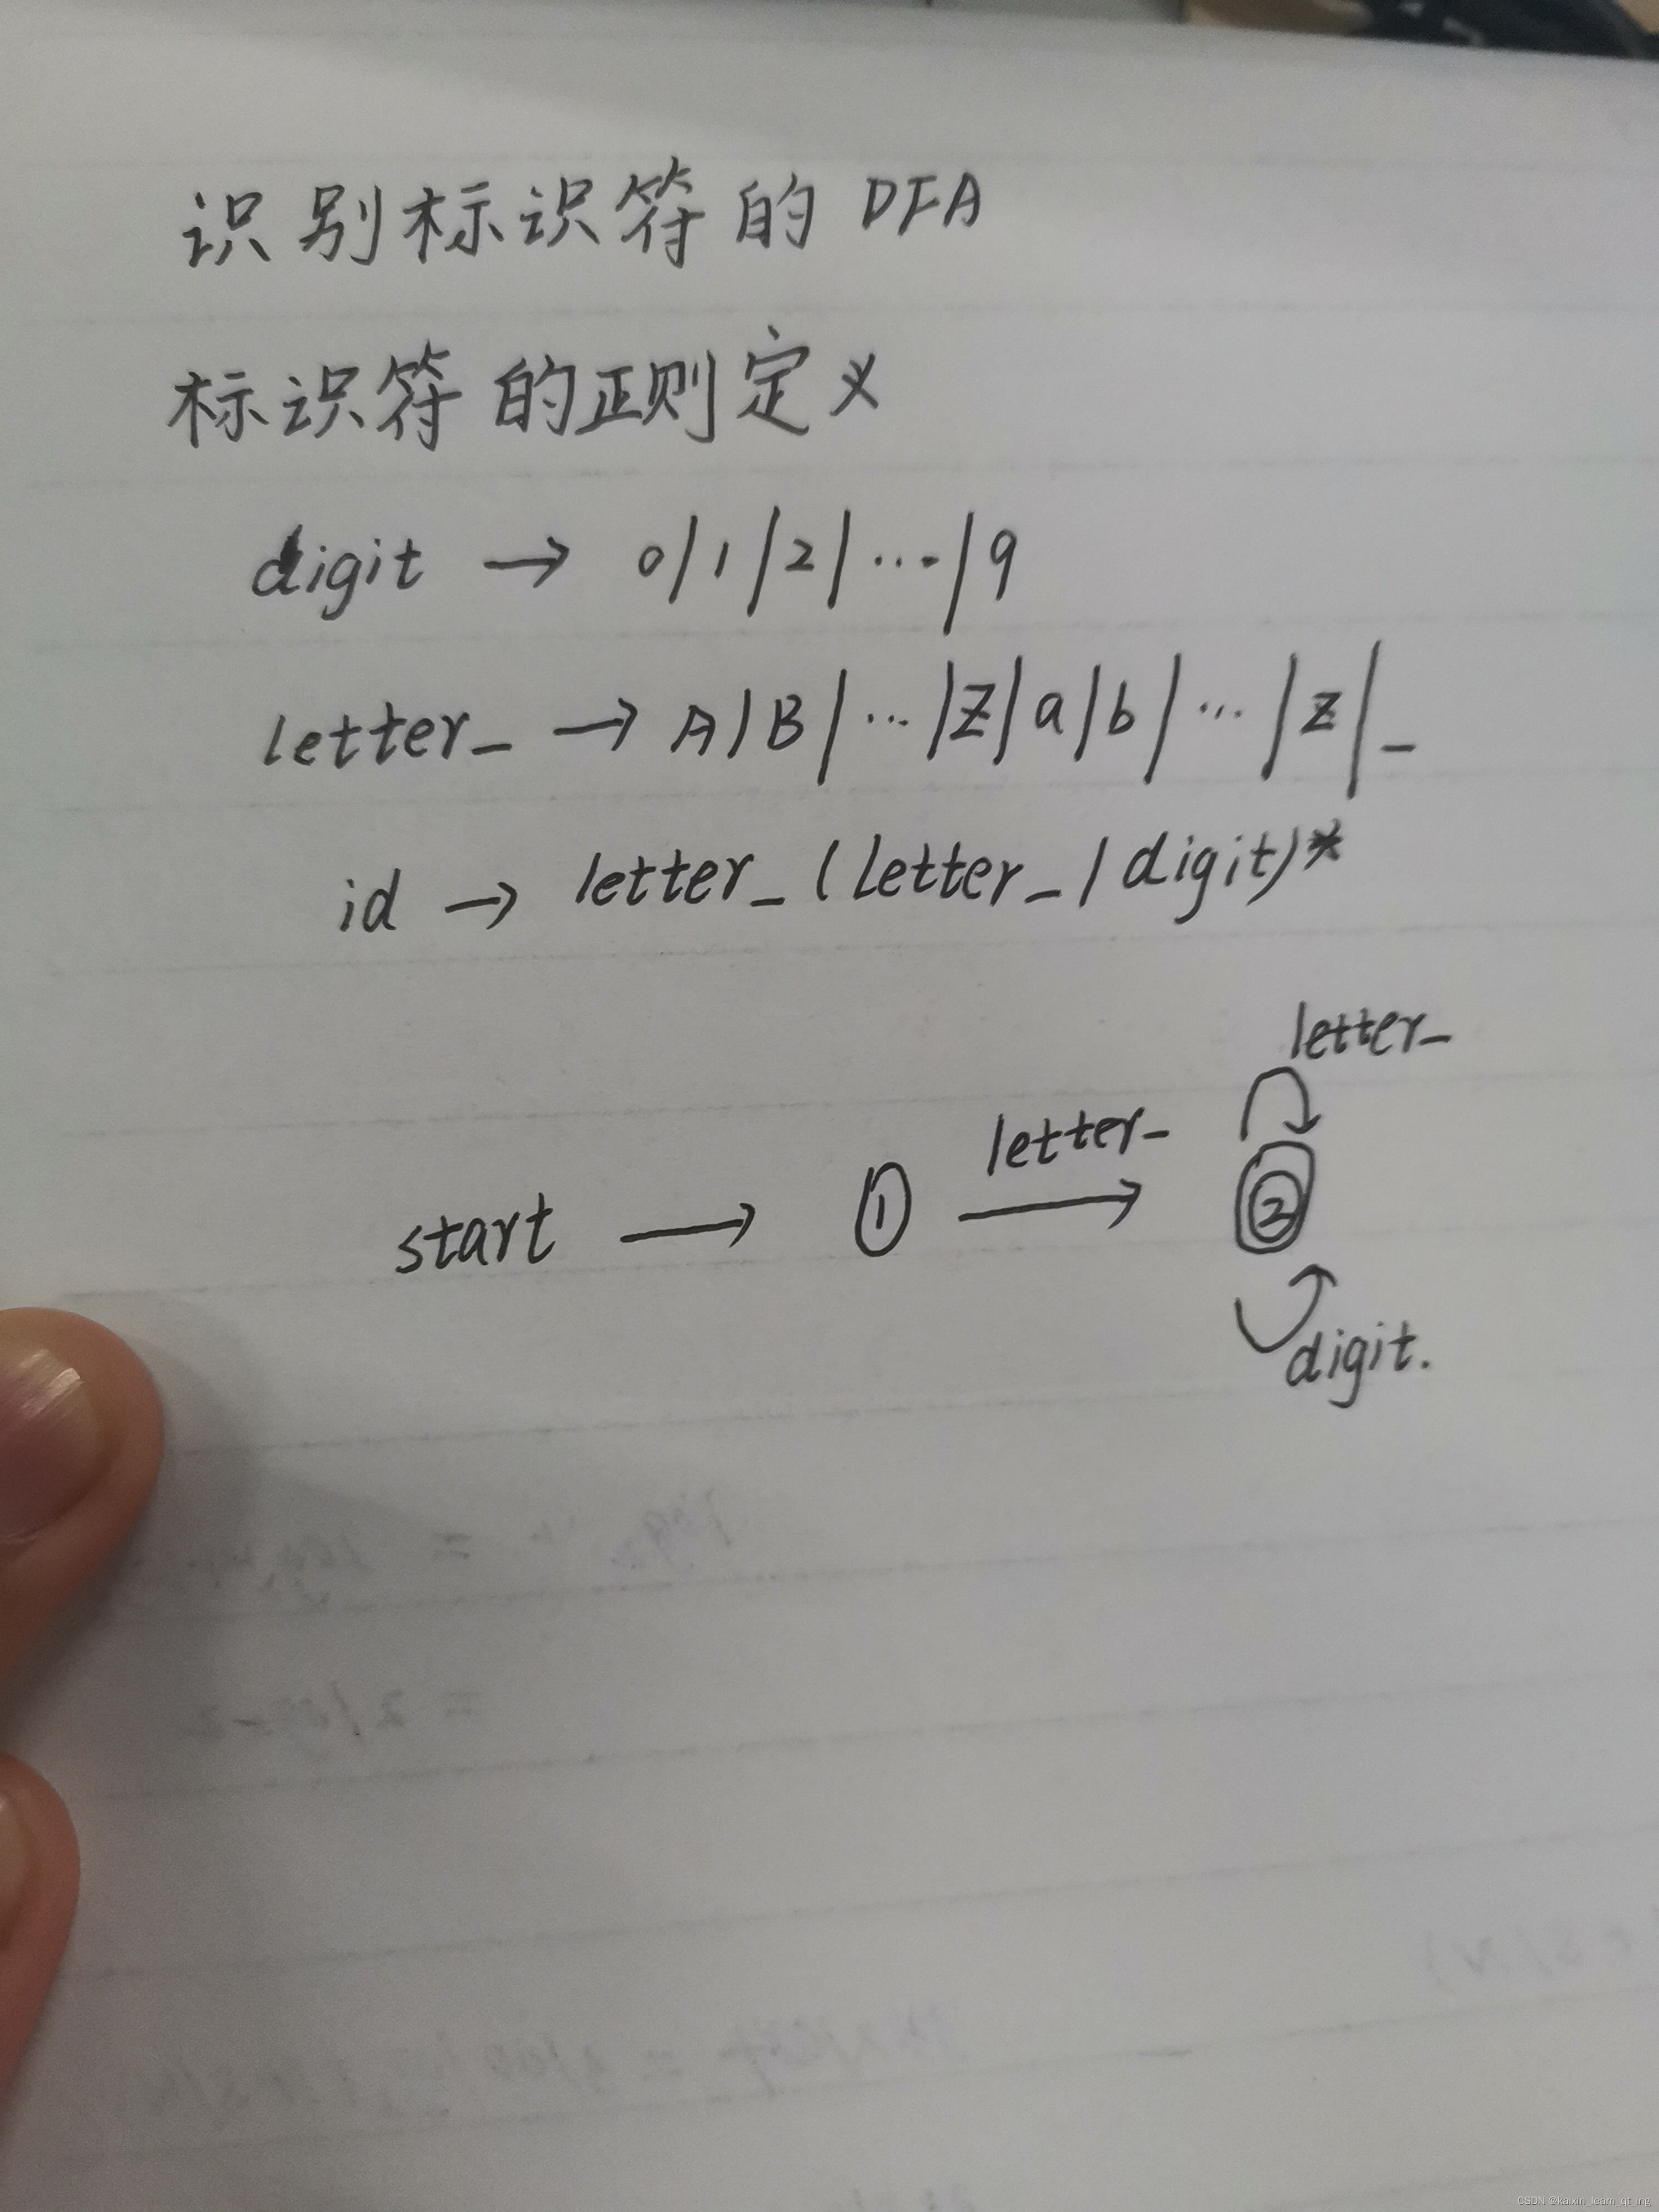 识别标识符的DFA
标识符的正则定义
digit → 0|1|2|...|9
letter_ → A|B|...|Z|a|b|...|z|_
id → letter_(letter_|digit)*
letter_
letter_
start → ① → ②
digit.
CSDN @kaixin_learn_qt_ing